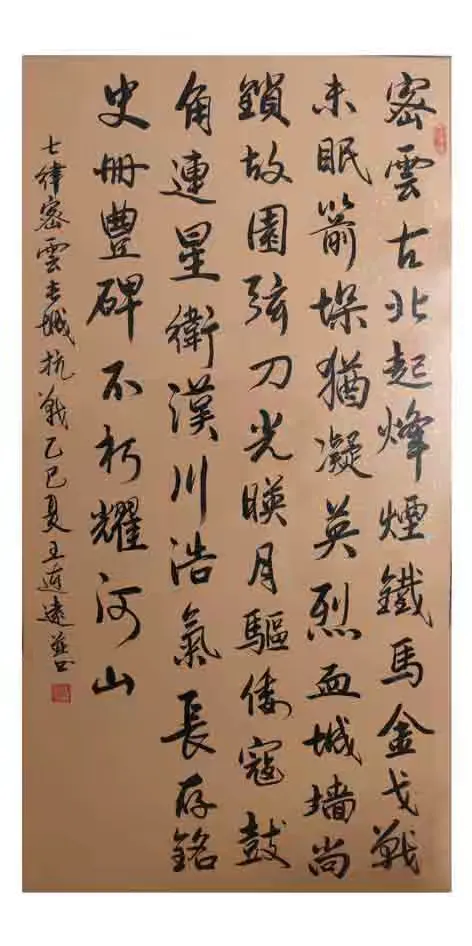 密雲古北起烽煙鐵馬金戈戰
未眠箭垛猶凝英烈血城墻尚
鎖故園弦刀光暎月驅倭寇鼓
角連星衛漢川浩氣長存銘
史冊豐碑不朽耀河山
七律密雲長城抗戰乙巳夏王遠並书